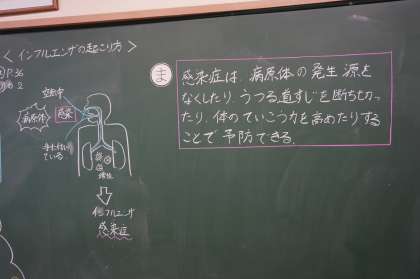 ＜インフルエンザの起こり方＞
P.36
空気中
病原体
感染
インフルエンザ
感染症
ま
感染症は、病原体の発生源を
なくしたり、うつる道すじを断ち切っ
たり、体のていこう力を高めたりする
ことで予防できる。